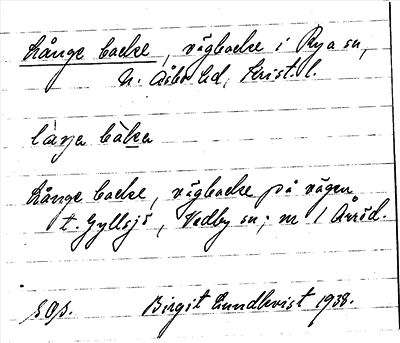 Långe backe, vägbacke i Rya sn,
N. Åsbo hd, Krist. l.
låŋa bàka
Långe backe, vägbacke på vägen
t. Gyllsjö, Vedby sn; nr 1 Åvröd.
s Ops. Birgit Lundkvist 1938.